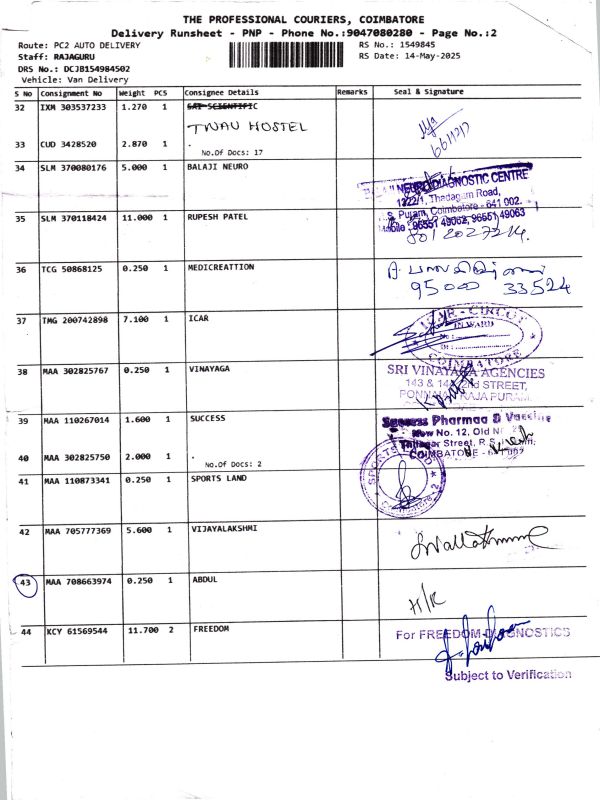 THE PROFESSIONAL COURIERS, COIMBATORE
Delivery Runsheet - PNP - Phone No.:9047080280 - Page No.:2
Route: PC2 AUTO DELIVERY RS No.: 1549845
Staff: RAJAGURU RS Date: 14-May-2025
DRS No.: DCJB154984502
Vehicle: Van Delivery
S No Consignment No Weight PCS Consignee Details Remarks Seal & Signature
32 IXM 303537233 1.270 1 SAI SCIENTIFIC
TNAU HOSTEL
33 CUD 3428520 2.870 1 .
No.Of Docs: 17
34 SLM 370080176 5.000 1 BALAJI NEURO
NEURO DIAGNOSTIC CENTRE
1222/1, Thadagam Road,
S. Puram, Coimbatore - 641 002.
Mobile : 96551 49062, 96551 49063
35 SLM 370118424 11.000 1 RUPESH PATEL
36 TCG 50868125 0.250 1 MEDICREATTION
95000 33524
37 TMG 200742898 7.100 1 ICAR
INWARD
COIMBATORE
38 MAA 302825767 0.250 1 VINAYAGA
SRI VINAYAGA AGENCIES
2nd STREET,
RAJA PURAM
39 MAA 110267014 1.600 1 SUCCESS
Success Pharmaa & Vaccine
New No. 12, Old
Street, R.S.
COIMBATORE
40 MAA 302825750 2.000 1 .
No.Of Docs: 2
41 MAA 110873341 0.250 1 SPORTS LAND
SPORTS
42 MAA 705777369 5.600 1 VIJAYALAKSHMI
43 MAA 708663974 0.250 1 ABDUL
H/R
44 KCY 61569544 11.700 2 FREEDOM
For FREEDOM DIAGNOSTICS
Subject to Verification